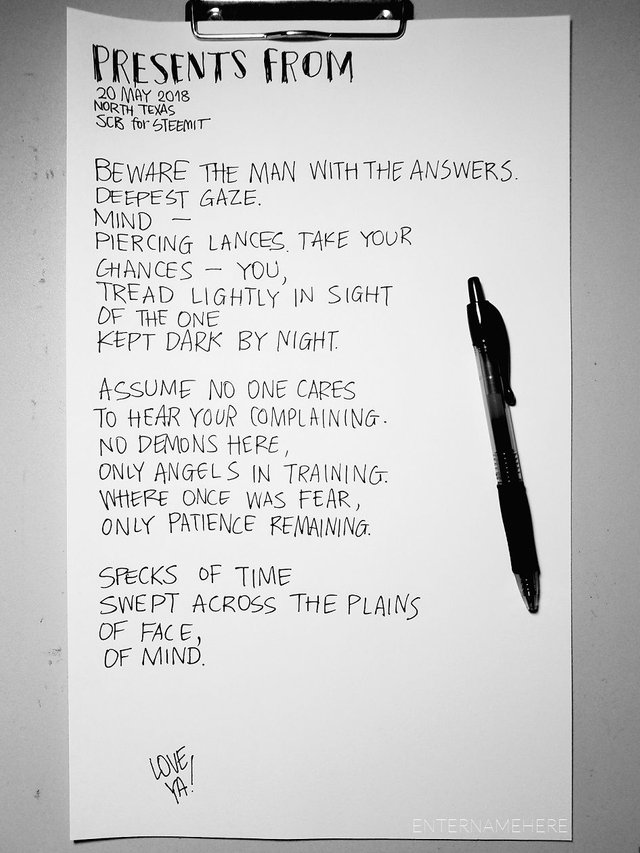 PRESENTS FROM
20 MAY 2018
NORTH TEXAS
SCB for STEEMIT
BEWARE THE MAN WITH THE ANSWERS.
DEEPEST GAZE.
MIND —
PIERCING LANCES. TAKE YOUR
CHANCES — YOU,
TREAD LIGHTLY IN SIGHT
OF THE ONE
KEPT DARK BY NIGHT.
ASSUME NO ONE CARES
TO HEAR YOUR COMPLAINING.
NO DEMONS HERE,
ONLY ANGELS IN TRAINING.
WHERE ONCE WAS FEAR,
ONLY PATIENCE REMAINING.
SPECKS OF TIME
SWEPT ACROSS THE PLAINS
OF FACE,
OF MIND.
LOVE
YA!
ENTERNAMEHERE